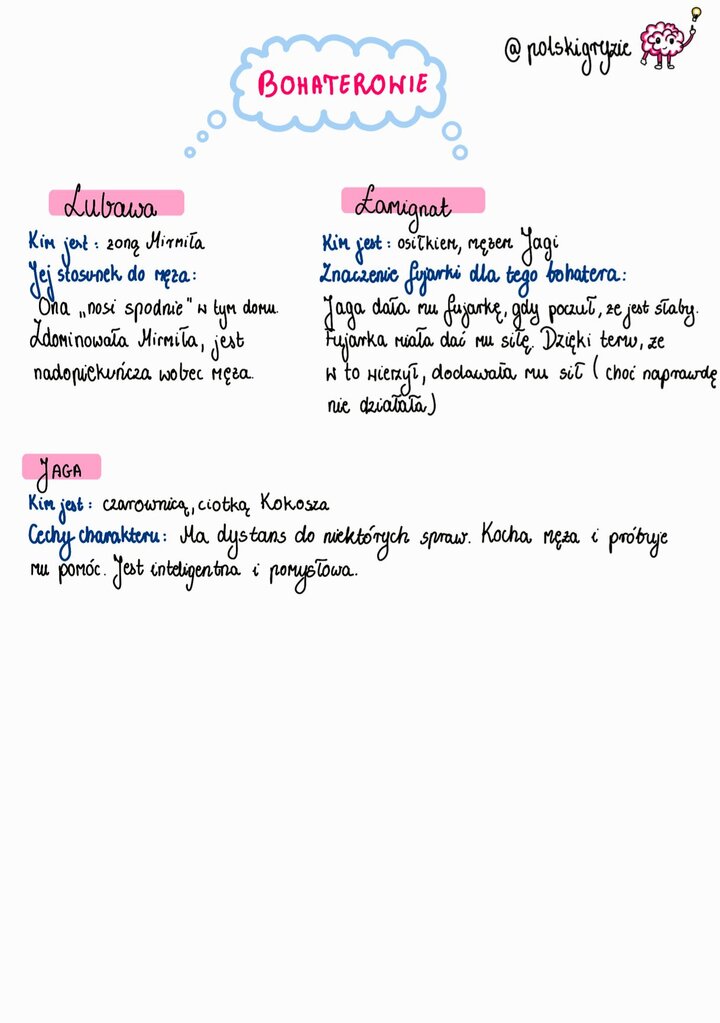 @polskigryzie
BOHATEROWIE
Lubawa
Kim jest: żoną Mirmiła
Jej stosunek do męża:
Ona „nosi spodnie" w tym domu.
Zdominowała Mirmiła, jest
nadopiekuńcza wobec męża.
Łamignat
Kim jest: osiłkiem, mężem Jagi
Znaczenie fujarki dla tego bohatera:
Jaga dała mu fujarkę, gdy poczuł, że jest słaby.
Fujarka miała dać mu siłę. Dzięki temu, że
w to wierzył, dodawała mu sił (choć naprawdę
nie działała)
JAGA
Kim jest: czarownicą, ciotką Kokosza
Cechy charakteru: Ma dystans do niektórych spraw. Kocha męża i próbuje
mu pomóc. Jest inteligentna i pomysłowa.